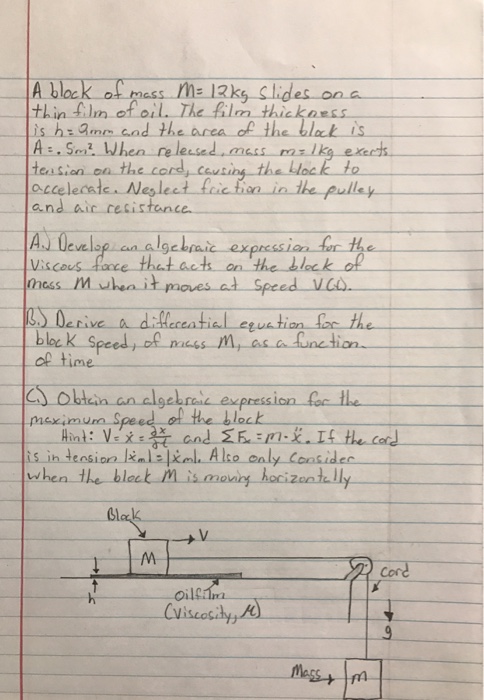 A block of mass M= 12kg slides on a
thin film of oil. The film thickness
is h= 2mm and the area of the block is
A = .5m². When released, mass m=1kg exerts
tension on the cord, causing the block to
accelerate. Neglect friction in the pulley
and air resistance.
A.) Develop an algebraic expression for the
viscous force that acts on the block of
mass M when it moves at speed V(t).
B.) Derive a differential equation for the
block speed, of mass M, as a function
of time
C.) Obtain an algebraic expression for the
maximum speed of the block
Hint: V= ẋ = dx/dt and ΣFx = m·ẍ. If the cord
is in tension |ẋm|=|ẋm|. Also only consider
when the block M is moving horizontally
Block
V
M
h
oilfilm
(Viscosity, μ)
Cord
g
Mass
m